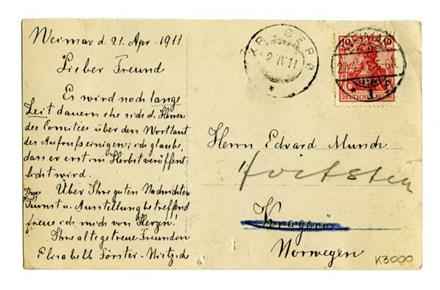 Weimar d 21. Apr. 1911
Lieber Freund
Es wird noch lange
Zeit dauern ehe sich d. Herren
des Comitées über den Wortlaut
des Aufrufs einigen; ich glaube,
dass er erst im Herbst veröffent-
licht wird.
Über Ihre guten Nachrichten
Ihre
Kunst u. Ausstellung betreffend
freue ich mich von Herzen!
Ihre alte getreue Freundin
Elisabeth Förster-Nietzsche
KRAGERØ
IV 11
WEIMAR
10 10
DEUTSCHES REICH
Herrn Edvard Munch
Hvitsten
Kragerö
Norwegen
K3000